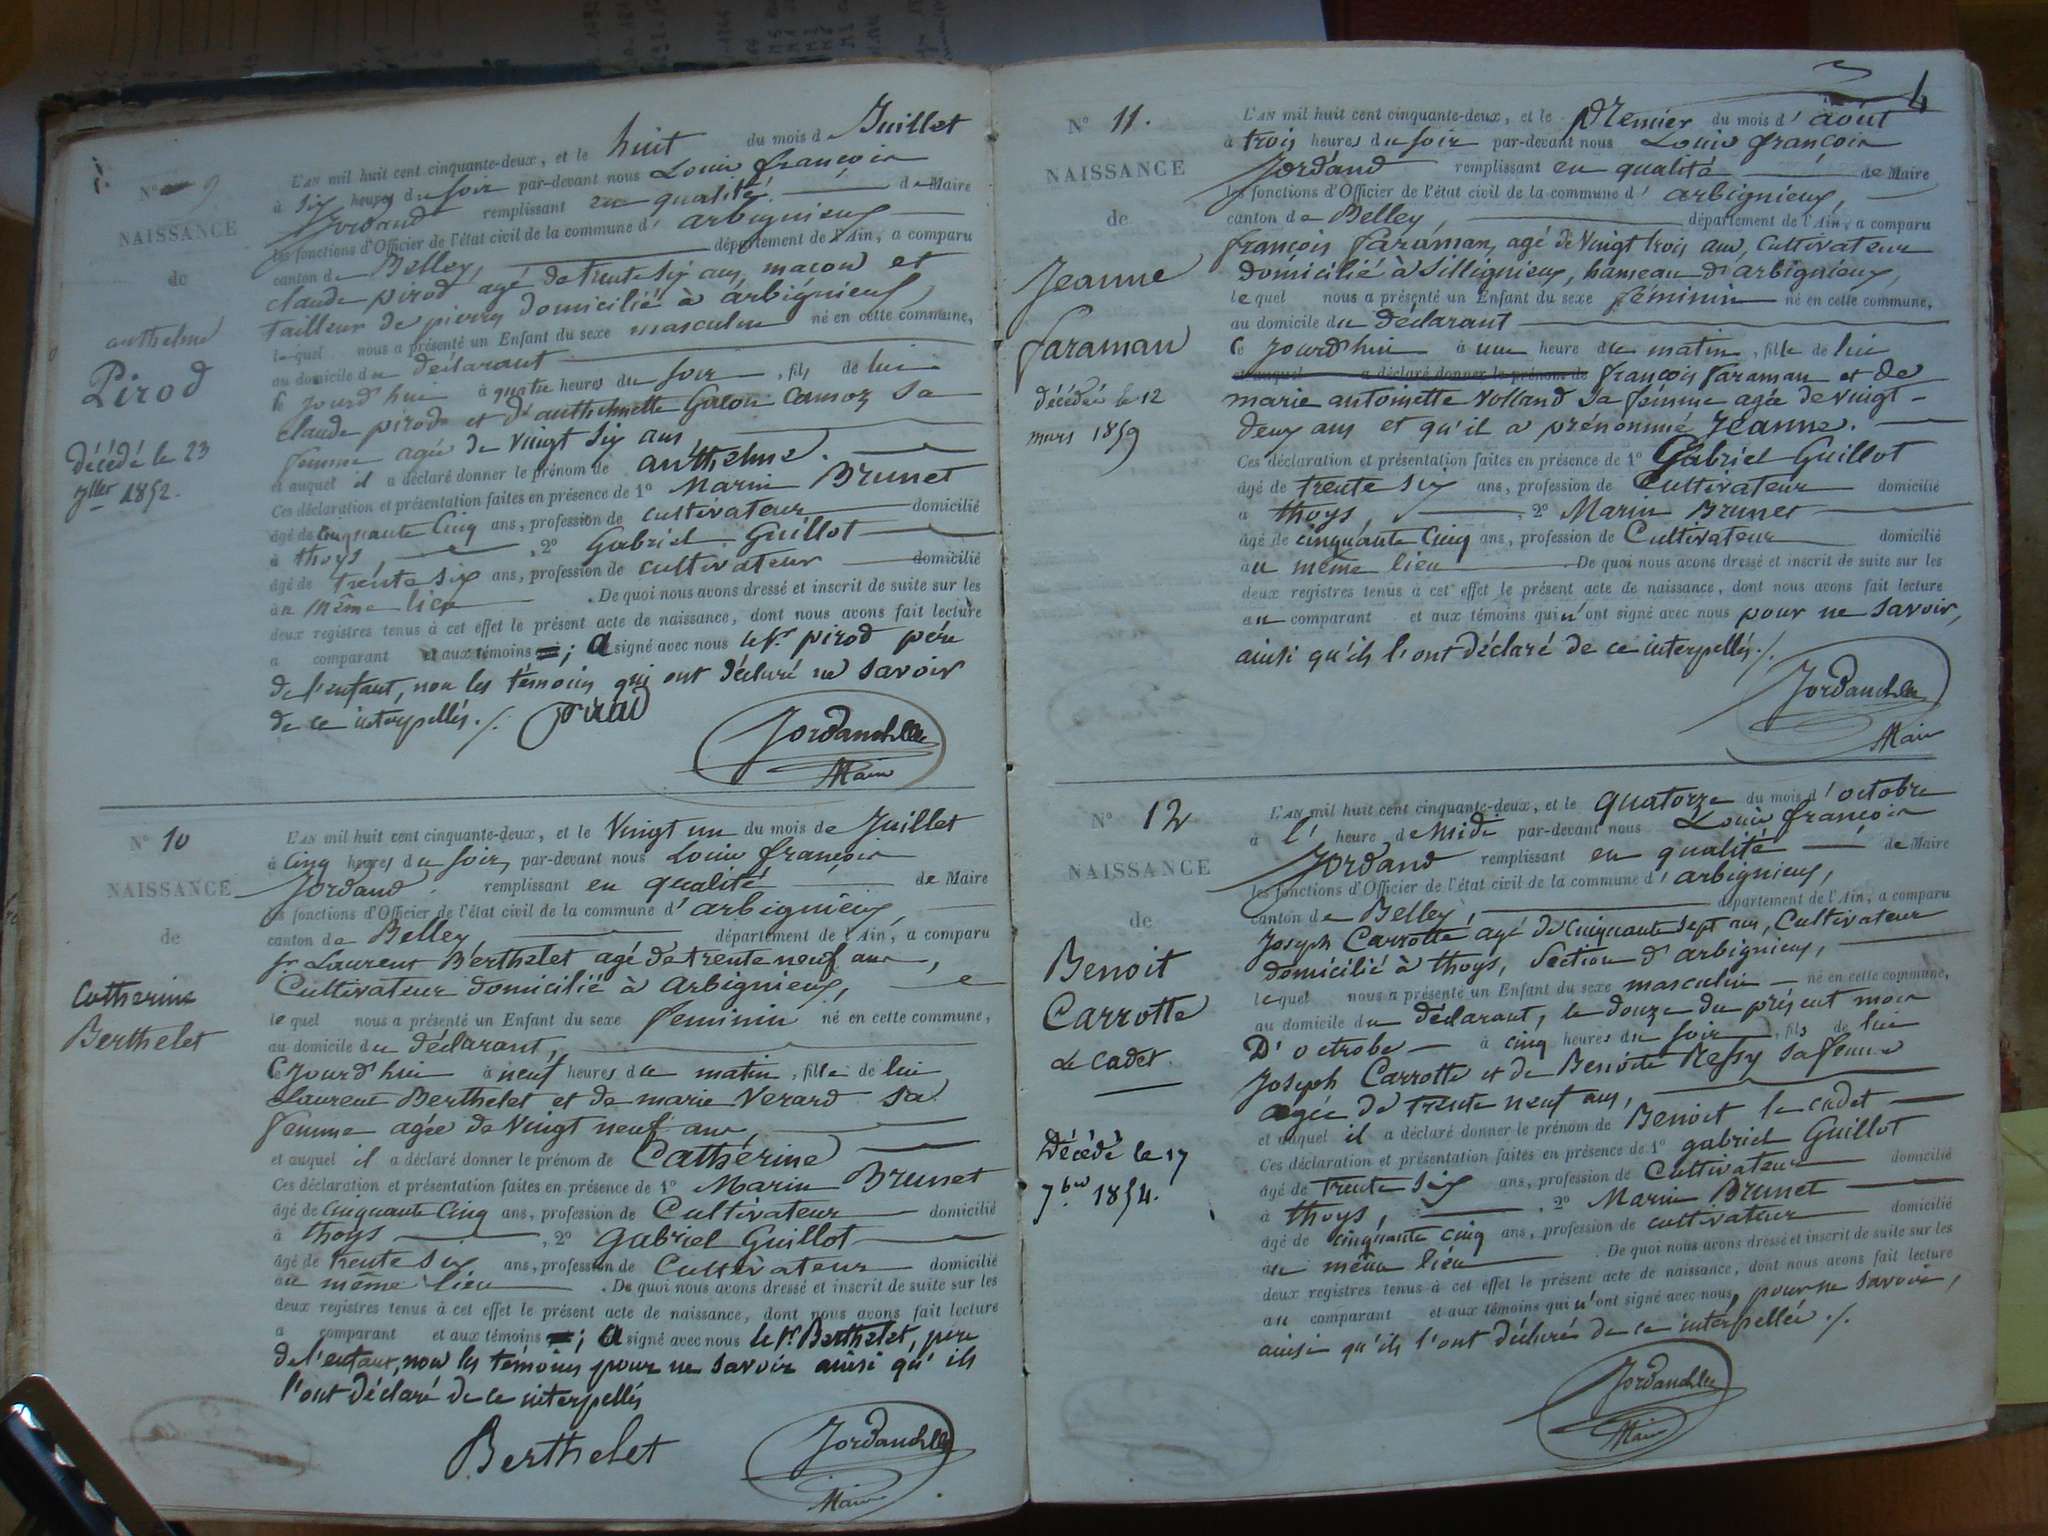 N° 9
NAISSANCE
de
anthelme
Pirod
décédé le 23
1852.
L'AN mil huit cent cinquante-deux, et le huit du mois de Juillet
à six heures du soir par-devant nous Louis françois
Jordand remplissant en qualité de Maire
les fonctions d'Officier de l'état civil de la commune d'arbignieux
canton de Belley, département de l'Ain, a comparu
claude pirod agé de trente six ans, maçon et
tailleur de pierres domicilié à arbignieux,
lequel nous a présenté un Enfant du sexe masculin né en cette commune,
au domicile du déclarant
ce jourd'hui à quatre heures du soir, fils de lui
claude pirod et d'anthelmette sa
femme agée de vingt six ans
et auquel il a déclaré donner le prénom de anthelme.
Ces déclaration et présentation faites en présence de 1° Marin Brunet
âgé de cinquante cinq ans, profession de cultivateur domicilié
à thoys, 2° Gabriel Guillot
âgé de trente six ans, profession de cultivateur domicilié
au même lieu. De quoi nous avons dressé et inscrit de suite sur les
deux registres tenus à cet effet le présent acte de naissance, dont nous avons fait lecture
a comparant et aux témoins; a signé avec nous le Sr. pirod père
de l'enfant, non les témoins qui ont déclaré ne savoir
de ce interpellés./. Pirod
Maire
N° 10
NAISSANCE
de
Catherine
Berthelet
L'AN mil huit cent cinquante-deux, et le Vingt un du mois de Juillet
à cinq heures du soir, par-devant nous Louis françois
Jordand remplissant en qualité de Maire
les fonctions d'Officier de l'état civil de la commune d'arbignieux,
canton de Belley département de l'Ain, a comparu
Sr Laurent Berthelet agé de trente neuf ans,
Cultivateur domicilié à Arbignieux,
lequel nous a présenté un Enfant du sexe féminin né en cette commune,
au domicile du déclarant,
ce jourd'hui à neuf heures du matin, fille de lui
Laurent Berthelet et de marie Verard sa
femme agée de vingt neuf ans
et auquel il a déclaré donner le prénom de Cathérine
Ces déclaration et présentation faites en présence de 1° Marin Brunet
âgé de cinquante cinq ans, profession de Cultivateur domicilié
à thoys, 2° Gabriel Guillot
âgé de trente six ans, profession de Cultivateur domicilié
au même lieu. De quoi nous avons dressé et inscrit de suite sur les
deux registres tenus à cet effet le présent acte de naissance, dont nous avons fait lecture
a comparant et aux témoins; a signé avec nous le Sr. Berthelet, père
de l'enfant, non les témoins pour ne savoir ainsi qu'ils
l'ont déclaré de ce interpellés
Berthelet
Maire
4
N° 11.
NAISSANCE
de
Jeanne
faraman
décédée le 12
mars 1859
L'AN mil huit cent cinquante-deux, et le Premier du mois d'août
à trois heures du soir par-devant nous Louis françois
Jordand remplissant en qualité de Maire
les fonctions d'Officier de l'état civil de la commune d'arbignieux,
canton de Belley, département de l'Ain, a comparu
françois faraman, agé de vingt trois ans, Cultivateur
domicilié à Sillignieux, hameau d'arbignieux,
lequel nous a présenté un Enfant du sexe féminin né en cette commune,
au domicile du déclarant
ce jourd'hui à une heure du matin, fille de lui
et auquel a déclaré donner le prénom de françois faraman et de
marie antoinette Volland sa femme agée de vingt-
deux ans et qu'il a prénommé Jeanne.
Ces déclaration et présentation faites en présence de 1° Gabriel Guillot
âgé de trente six ans, profession de Cultivateur domicilié
à thoys, 2° Marin Brunet
âgé de cinquante cinq ans, profession de Cultivateur domicilié
au même lieu. De quoi nous avons dressé et inscrit de suite sur les
deux registres tenus à cet effet le présent acte de naissance, dont nous avons fait lecture
au comparant et aux témoins qui n'ont signé avec nous pour ne savoir,
ainsi qu'ils l'ont déclaré de ce interpellés./.
Maire
N° 12
NAISSANCE
de
Benoit
Carrotte
Le cadet
Décédé le 17
7bre 1854.
L'AN mil huit cent cinquante-deux, et le quatorze du mois d'octobre
à l'heure de Midi par-devant nous Louis françois
Jordand remplissant en qualité de Maire
les fonctions d'Officier de l'état civil de la commune d'arbignieux,
canton de Belley, département de l'Ain, a comparu
Joseph Carrotte agé de cinquante sept ans, Cultivateur
domicilié à thoys, Section d'arbignieux,
lequel nous a présenté un Enfant du sexe masculin né en cette commune,
au domicile du déclarant, le douze du présent mois
D'octobre à cinq heures du soir, fils de lui
Joseph Carrotte et de Benoite sa femme
agée de trente neuf ans,
et auquel il a déclaré donner le prénom de Benoit le cadet
Ces déclaration et présentation faites en présence de 1° gabriel Guillot
âgé de trente six ans, profession de Cultivateur domicilié
à thoys, 2° Marin Brunet
âgé de cinquante cinq ans, profession de cultivateur domicilié
au même lieu. De quoi nous avons dressé et inscrit de suite sur les
deux registres tenus à cet effet le présent acte de naissance, dont nous avons fait lecture
au comparant et aux témoins qui n'ont signé avec nous, pour ne savoir,
ainsi qu'ils l'ont déclaré de ce interpellés./.
Maire